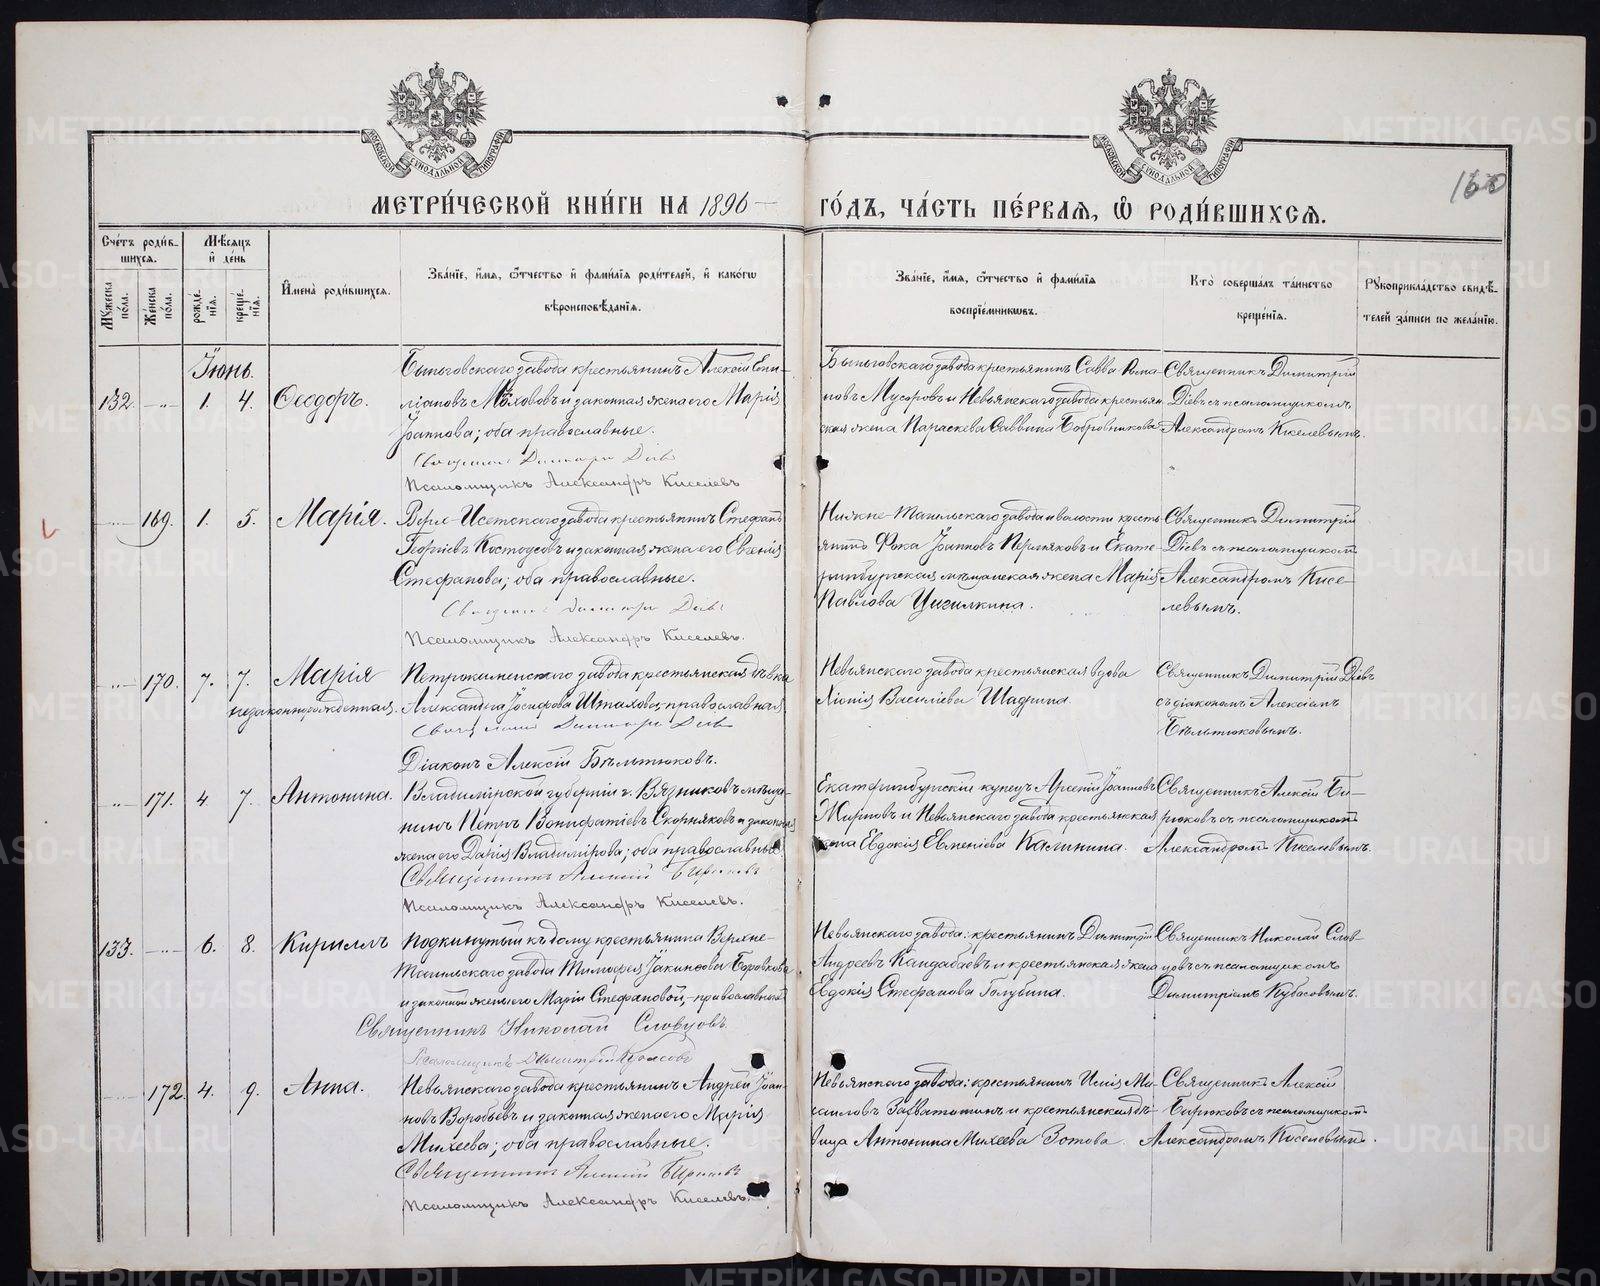 160
МЕТРИ́ЧЕСКОЙ КНИ́ГИ НА 1896 ГО́ДЪ, ЧА́СТЬ ПЕ́РВАЯ, Ѽ РОДИ́ВШИХСЯ.
Сче́тъ роди́вшихся.
Мꙋжеска по́ла.
Же́нска по́ла.
Мѣ́сяцъ и҆ де́нь
рожде́нїя.
креще́нїя.
И҆мена̀ роди́вшихся.
Зва́нїе, и҆́мя, ѻ҆́тчество и҆ фами́лїя роди́телей, и҆ како́гѡ вѣроисповѣ́данїя.
Зва́нїе, и҆́мя, ѻ҆́тчество и҆ фами́лїя воспрїе́мникѡвъ.
Кто̀ соверша́лъ та́инство креще́нїя.
Рꙋкоприкла́дство свидѣ́телей за́писи по жела́нїю.
Іюнь.
132. 1. 4. Ѳеодоръ.
Быньговскаго завода крестьянинъ Алексій Епи-
ліановъ Моховъ и законная жена его Марія
Іоаннова; оба православные.
Священникъ Димитрій Діевъ
Псаломщикъ Александръ Киселевъ
Быньговскаго завода крестьянинъ Савва Рома-
новъ Мусоровъ и Невьянскаго завода крестьян
ская жена Параскева Саввина Бобровникова
Священникъ Димитрій
Діевъ съ псаломщикомъ
Александромъ Киселевымъ.
169. 1. 5. Марія.
Верхъ-Исетскаго завода крестьянинъ Стефанъ
Георгіевъ Костоусовъ и законная жена его Евгенія
Стефанова; оба православные.
Священникъ Димитрій Діевъ
Псаломщикъ Александръ Киселевъ.
Нижне-Тагильскаго завода и волости кресть-
янинъ Фока Іоанновъ Пермяковъ и Екате-
ринбургская мѣщанская жена Марія
Павлова Чигилкина.
Священникъ Димитрій
Діевъ съ псаломщикомъ
Александромъ Кисе-
левымъ.
170. 7. 7. Марія
незаконнорожденная.
Петрокаменскаго завода крестьянская дѣвка
Александра Іосифова Шталова, православная
Священникъ Димитрій Діевъ
Діаконъ Алексій Бѣльтюковъ.
Невьянскаго завода крестьянская вдова
Хіонія Василіева Шадрина.
Священникъ Димитрій Діевъ
съ діакономъ Алексіемъ
Бѣльтюковымъ.
171. 4. 7. Антонина.
Владимірской губерніи г. Вязниковъ мѣща-
нинъ Петръ Вонифатіевъ Скорняковъ и законная
жена его Дарія Владимірова; оба православные.
Священникъ Алексій Бирюковъ
Псаломщикъ Александръ Киселевъ.
Екатеринбургскій купецъ Арсеній Іоанновъ
Жирновъ и Невьянскаго завода крестьянская
жена Евдокія Евменіева Калинина.
Священникъ Алексій Би-
рюковъ съ псаломщикомъ
Александромъ Киселевымъ.
133. 6. 8. Кириллъ
Подкинутый къ дому крестьянина Верхне-
Тагильскаго завода Тимофея Іакинфова Боровкова
и законной жены его Маріи Стефановой, – православныхъ
Священникъ Николай Словцовъ.
Псаломщикъ Димитрій Кубасовъ
Невьянскаго завода: крестьянинъ Димитрій
Андреевъ Кандабаевъ и крестьянская жена
Евдокія Стефанова Голубина.
Священникъ Николай Слов-
цовъ съ псаломщикомъ
Димитріемъ Кубасовымъ.
172. 4. 9. Анна.
Невьянскаго завода крестьянинъ Андрей Іоан-
новъ Воробьевъ и законная жена его Марія
Михеева; оба православные.
Священникъ Алексій Бирюковъ
Псаломщикъ Александръ Киселевъ.
Невьянскаго завода: крестьянинъ Исаія Ми-
хаиловъ Захватошинъ и крестьянская дѣ-
вица Антонина Михеева Зотова.
Священникъ Алексій
Бирюковъ съ псаломщикомъ
Александромъ Киселевымъ.